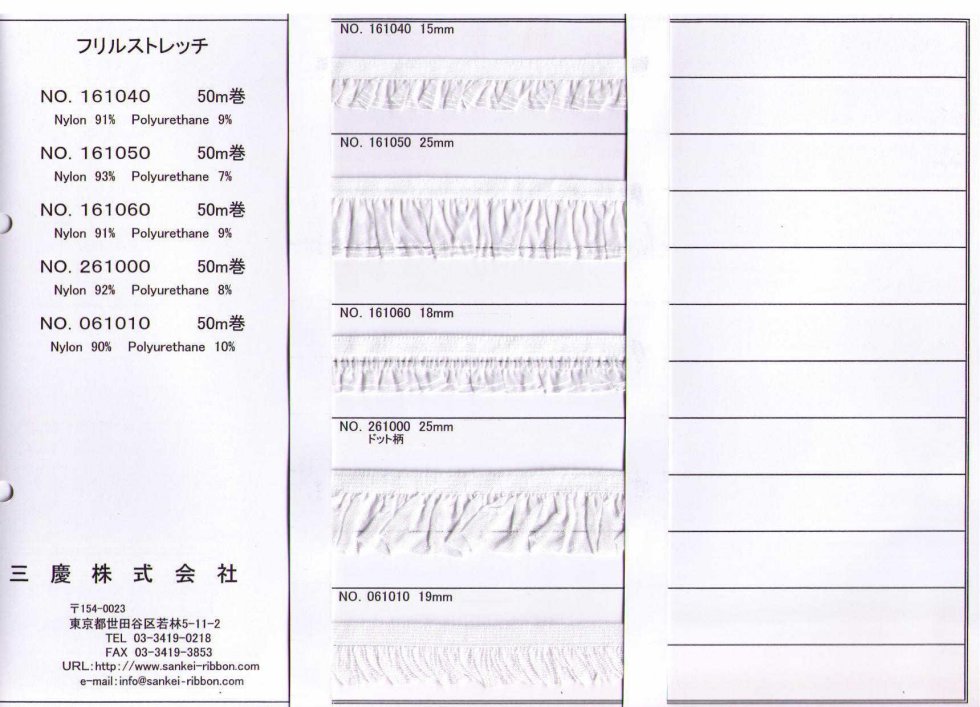 フリルストレッチ
NO. 161040 50m巻
Nylon 91% Polyurethane 9%
NO. 161050 50m巻
Nylon 93% Polyurethane 7%
NO. 161060 50m巻
Nylon 91% Polyurethane 9%
NO. 261000 50m巻
Nylon 92% Polyurethane 8%
NO. 061010 50m巻
Nylon 90% Polyurethane 10%
三慶株式会社
〒154-0023
東京都世田谷区若林5-11-2
TEL 03-3419-0218
FAX 03-3419-3853
URL:http://www.sankei-ribbon.com
e-mail:info@sankei-ribbon.com
NO. 161040 15mm
NO. 161050 25mm
NO. 161060 18mm
NO. 261000 25mm
ドット柄
NO. 061010 19mm